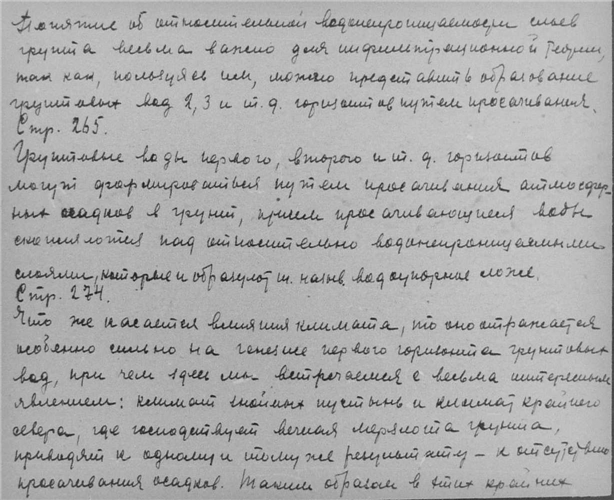 Понятие об относительной водонепроницаемости слоев
грунта весьма важно для инфильтрационной теории,
так как, пользуясь им, можно представить образование
грунтовых вод 2, 3 и т. д. горизонтов путем просачивания.
Стр. 265.
Грунтовые воды первого, второго и т. д. горизонтов
могут формироваться путем просачивания атмосфер-
ных осадков в грунт, причем просачивающиеся воды
скопляются над относительно водонепроницаемыми
слоями, которые и образуют т. назыв. водоупорное ложе.
Стр. 274.
Что же касается влияния климата, то оно отражается
особенно сильно на генезисе первого горизонта грунтовых
вод, при чем здесь мы встречаемся с весьма интересным
явлением: климат знойных пустынь и климат крайнего
севера, где господствует вечная мерзлота грунта,
приводят к одному и тому же результату – к отсутствию
просачивания осадков. Таким образом в этих крайних